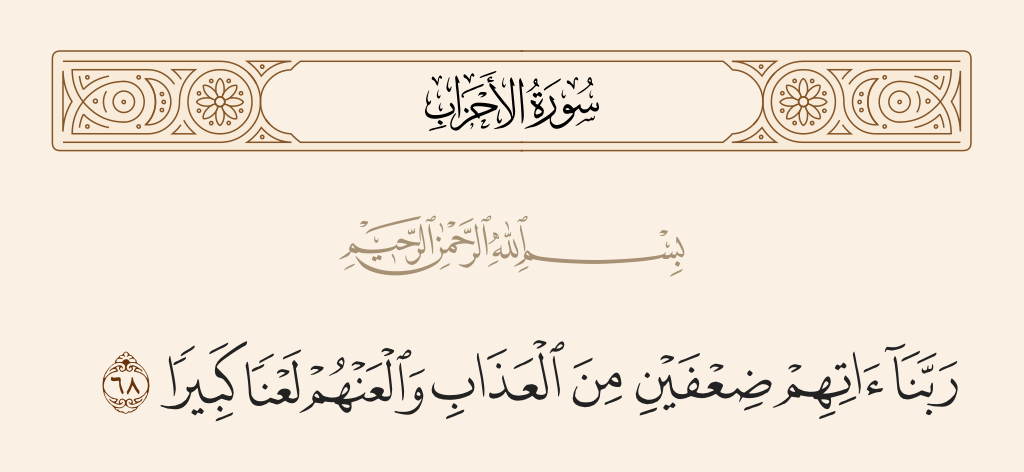 سُورَةُ الأَحْزَابِ
بِسْمِ ٱللَّهِ ٱلرَّحْمَٰنِ ٱلرَّحِيمِ
رَبَّنَآ ءَاتِهِمْ ضِعْفَيْنِ مِنَ ٱلْعَذَابِ وَٱلْعَنْهُمْ لَعْنًا كَبِيرًا ٦٨